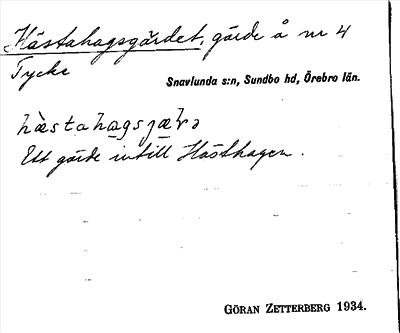 Hästahagsgärdet, gärde å nr 4
Tycke
Snavlunda s:n, Sundbo hd, Örebro län.
Ett gärde intill Hästhagen.
GÖRAN ZETTERBERG 1934.